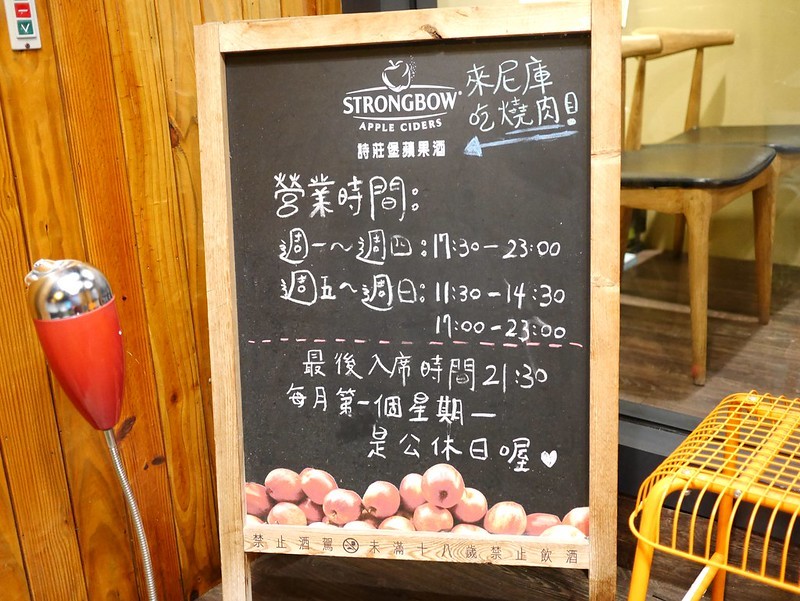 STRONGBOW
APPLE CIDERS
詩莊堡蘋果酒
來尼庫
吃燒肉!
營業時間:
週一~週四:17:30-23:00
週五~週日:11:30-14:30
17:00-23:00
最後入席時間21:30
每月第一個星期一
是公休日喔♥
禁止酒駕 未滿十八歲禁止飲酒